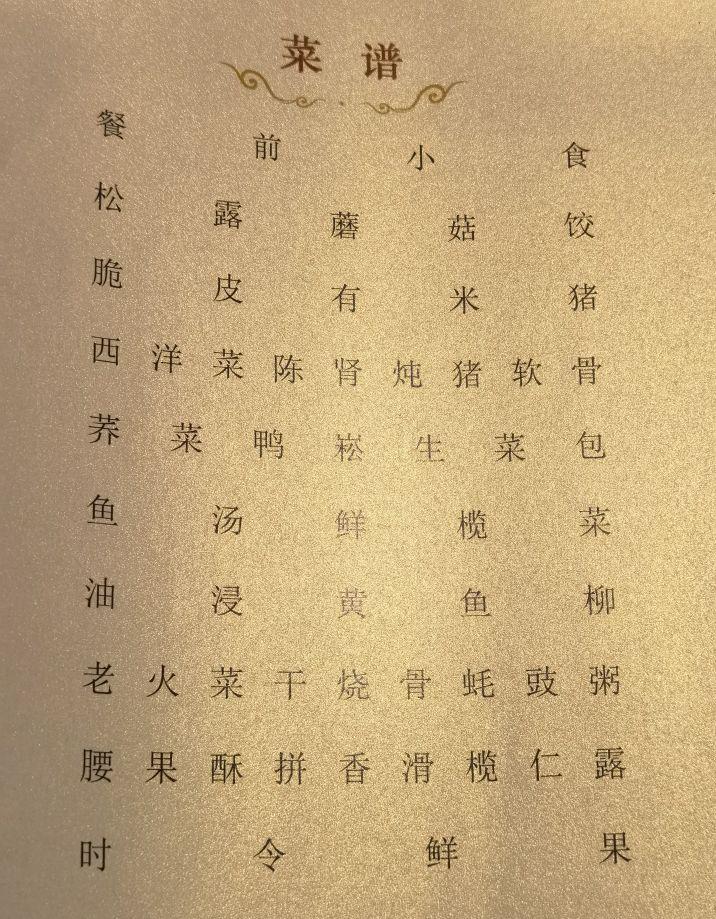 菜谱
餐前小食
松露蘑菇饺
脆皮有米猪
西洋菜陈肾炖猪软骨
荞菜鸭崧生菜包
鱼汤鲜榄菜
油浸黄鱼柳
老火菜干烧骨蚝豉粥
腰果酥拼香滑榄仁露
时令鲜果